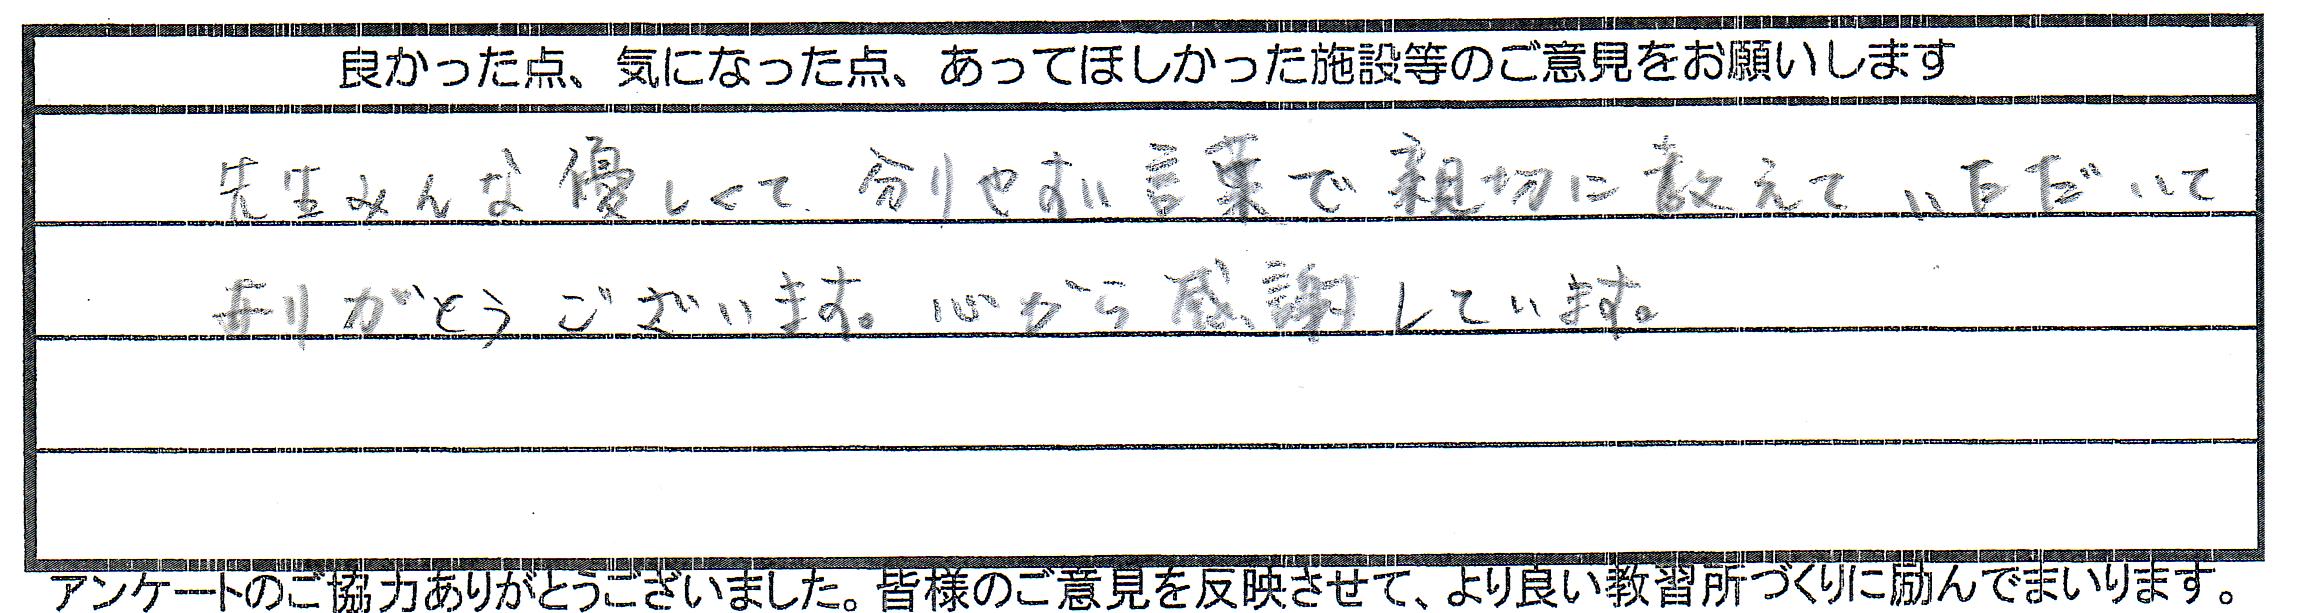 良かった点、気になった点、あってほしかった施設等のご意見をお願いします
先生みんな優しくて、分りやすい言葉で親切に教えていただいて
有りがとうございます。心から感謝しています。
アンケートのご協力ありがとうございました。皆様のご意見を反映させて、より良い教習所づくりに励んでまいります。